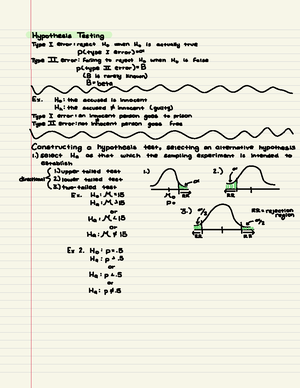 Hypothesis Testing
Type I error: reject H₀ when H₀ is actually true
P(type I error) = α
Type II error: failing to reject H₀ when H₀ is false
P(type II error) = B
(B is rarely known)
B = beta
Ex. H₀: the accused is innocent
Hₐ: the accused ≠ innocent (guilty)
Type I error: an innocent person goes to prison
Type II error: not innocent person goes free
Constructing a hypothesis test, selecting an alternative hypothesis
1.) select Hₐ as that which the sampling experiment is intended to
establish
directional
1.) upper tailed test
2.) lower tailed test
3.) two-tailed test
1.)
α
RR
2.)
RR
3.)
α/2
α/2
RR
RR
RR = rejection
region
Ex. H₀: μ = 15
Hₐ: μ > 15
or
Hₐ: μ < 15
or
Hₐ: μ ≠ 15
Ex 2. H₀: p = .5
or
or
Hₐ: p ≠ .5